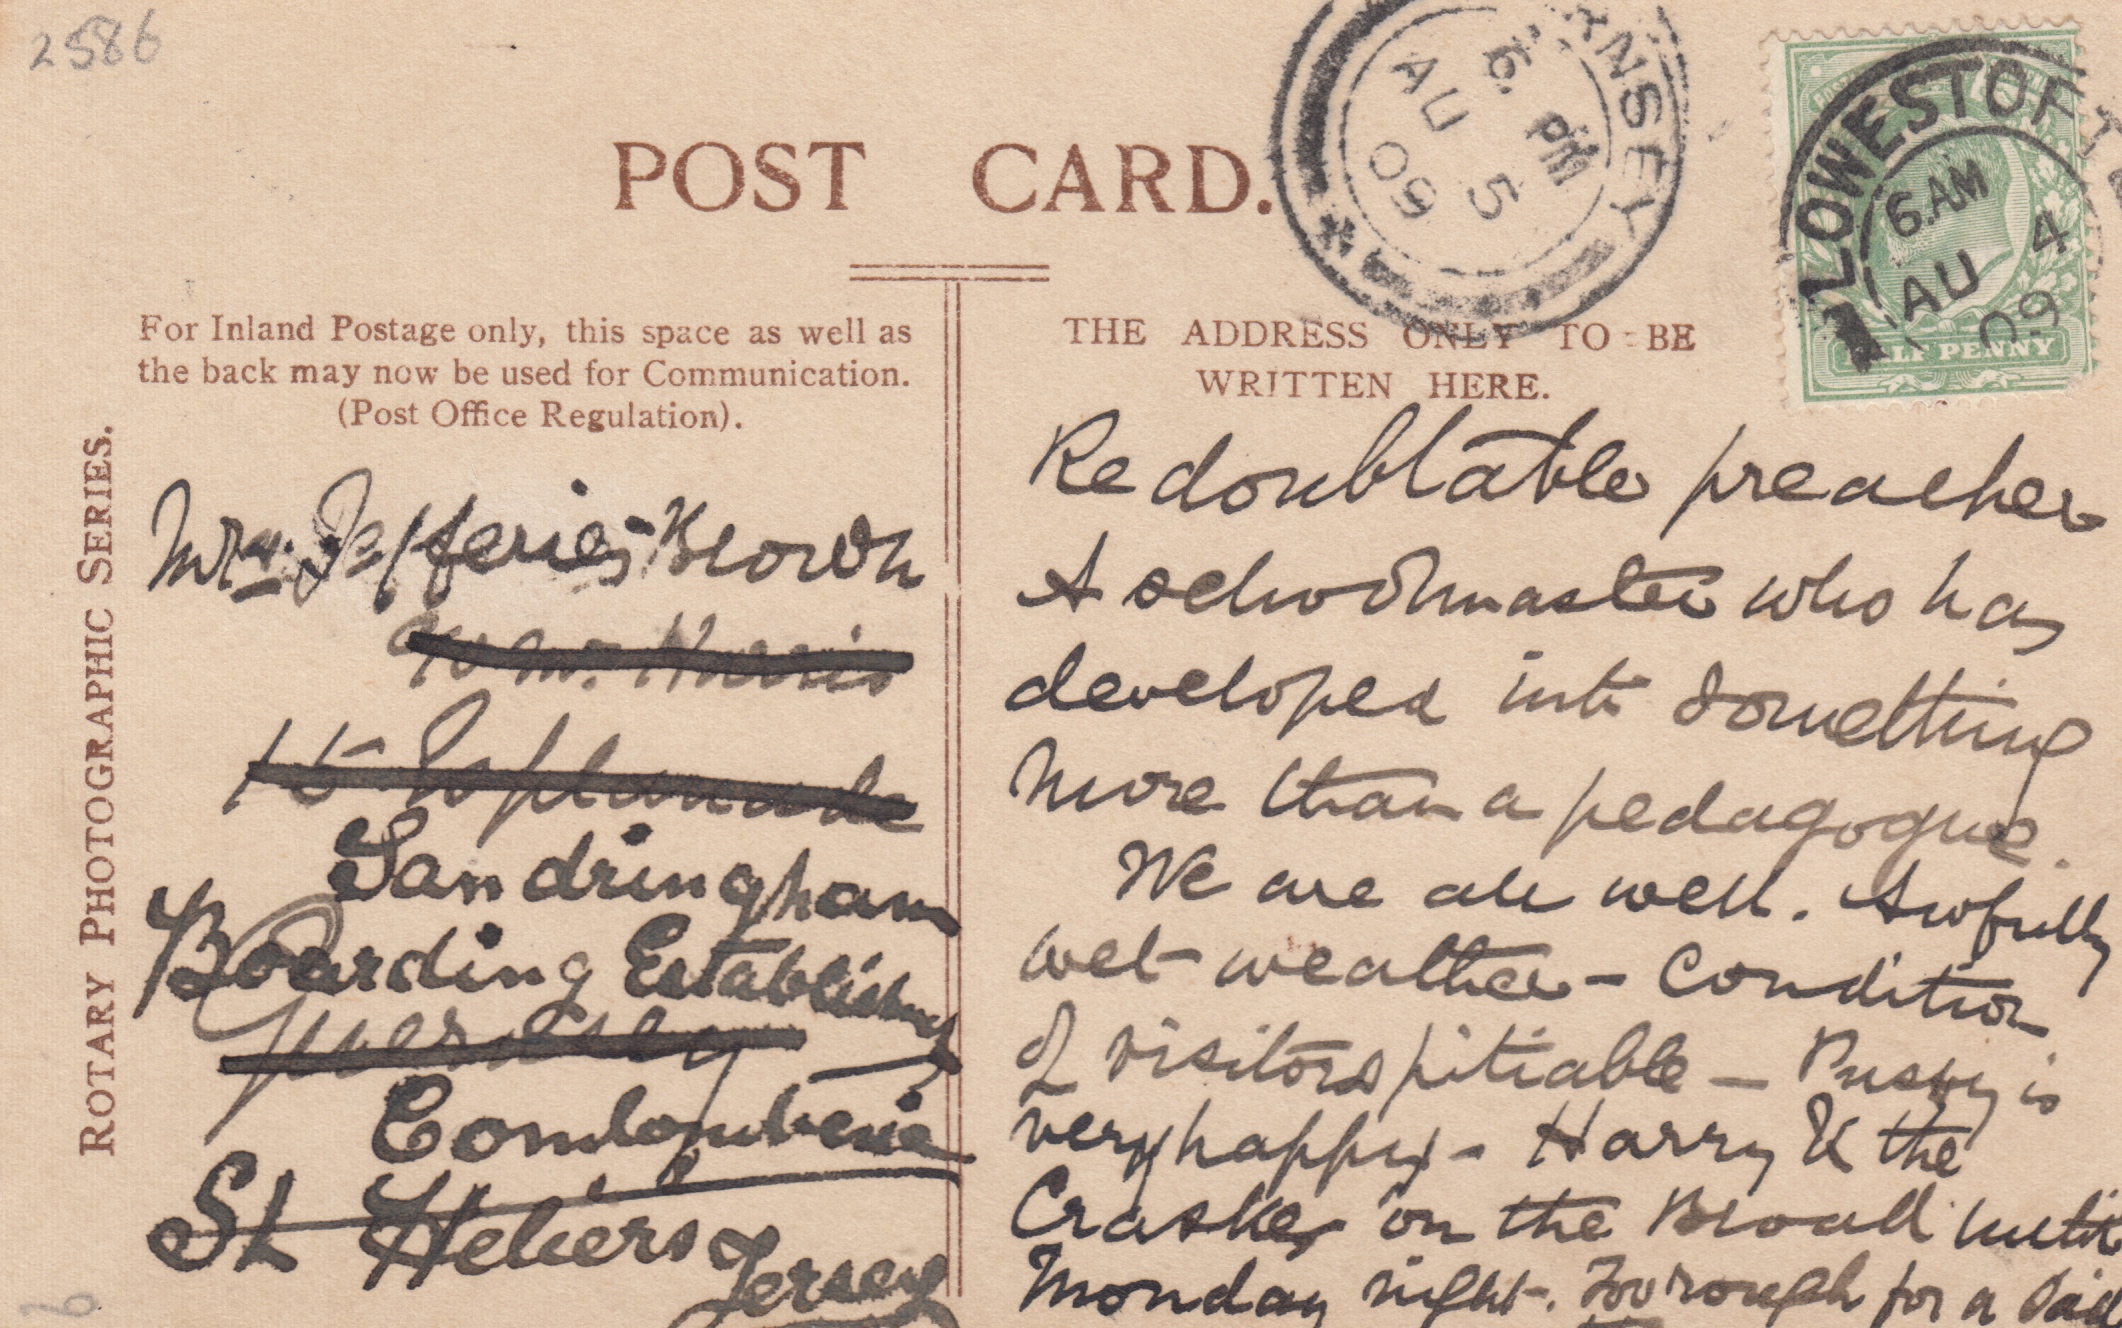 2586
POST CARD.
RNSEY
6. PM
AU 5
09
LOWESTOFT
6.AM
AU 4
09
HALF PENNY
For Inland Postage only, this space as well as
the back may now be used for Communication.
(Post Office Regulation).
THE ADDRESS ONLY TO BE
WRITTEN HERE.
ROTARY PHOTOGRAPHIC SERIES.
Mrs. Jefferies-Brown
15 Esplanade
Sandringham
Boarding Establishmt
Guernsey
St Heliers
Jersey
Redoubtable preacher
A schoolmaster who has
developed into something
more than a pedagogue.
We are all well. Awfully
wet weather – Condition
of visitors pitiable – Pussy is
very happy – Harry & the
on the Broad until
Monday night. Too rough for a sail